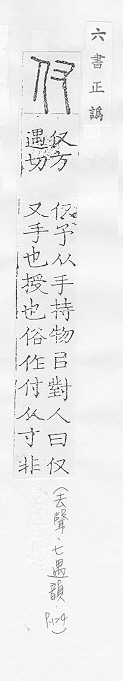 六書正譌
仅
仅方
遇切
仅予从手持物㠯對人曰仅
又手也授也俗作付从寸非
(去聲.七遇韻.P.124)